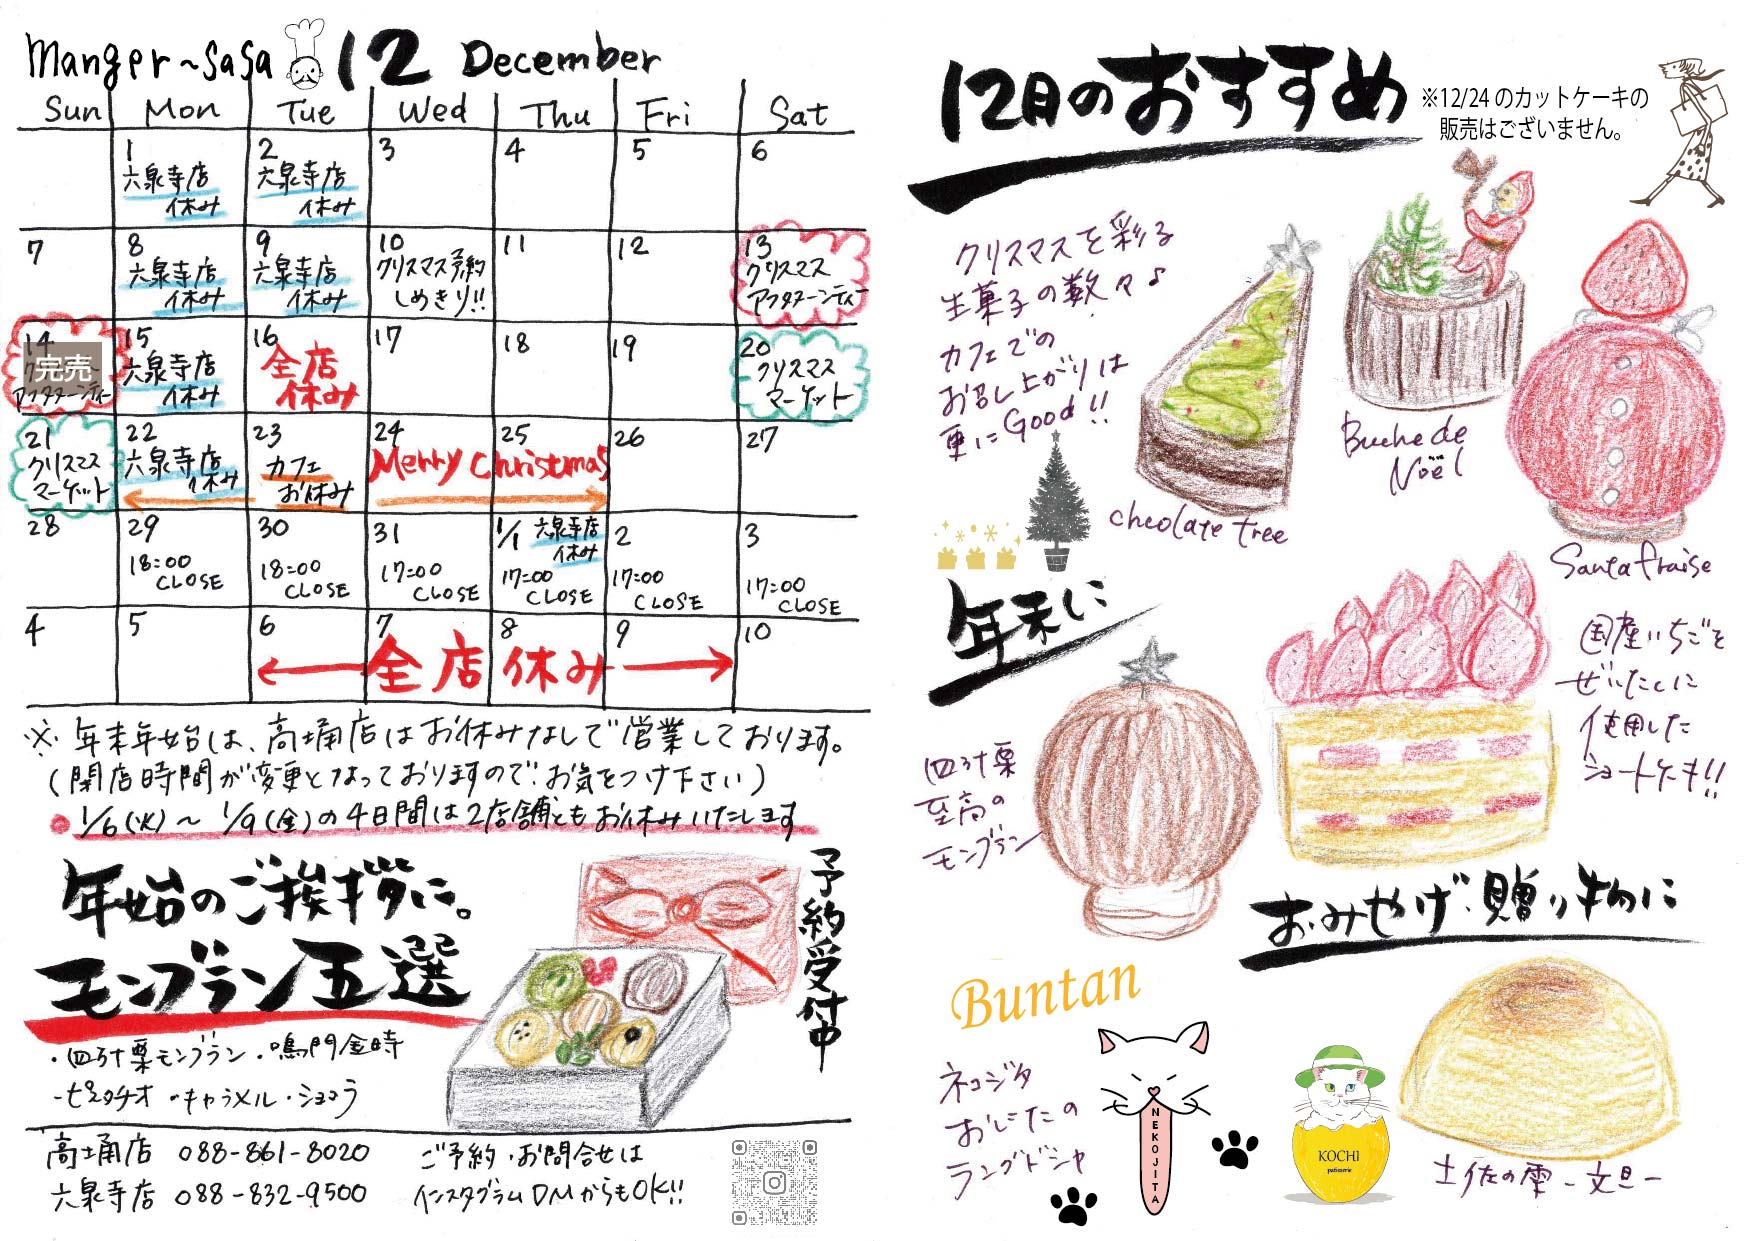 manger~sasa 12 December
Sun Mon Tue Wed Thu Fri Sat
1 六泉寺店 休み
2 六泉寺店 休み
3
4
5
6
7
8 六泉寺店 休み
9 六泉寺店 休み
10 クリスマス予約 しめきり!!
11
12
13 クリスマス アフタヌーンティー
14 完売 アフタヌーンティー
15 六泉寺店 休み
16 全店 休み
17
18
19
20 クリスマス マーケット
21 クリスマス マーケット
22 六泉寺店 休み
23 カフェ お休み
24 25 Merry Christmas
26
27
28
29 18:00 CLOSE
30 18:00 CLOSE
31 17:00 CLOSE
1/1 六泉寺店 休み 17:00 CLOSE
2 17:00 CLOSE
3 17:00 CLOSE
4
5
6 7 8 9 全店休み
10
※年末年始は、高埇店はお休みなしで営業しております。
(閉店時間が変更となっておりますので、お気をつけ下さい)
1/6(火)~1/9(金)の4日間は2店舗ともお休みいたします
年始のご挨拶に。
モンブラン五選
予約受付中
・四万十栗モンブラン・鳴門金時
・ピスタチオ ・キャラメル・ショコラ
高埇店 088-861-8020
六泉寺店 088-832-9500
ご予約・お問合せは
インスタグラムDMからもOK!!
12月のおすすめ
※12/24のカットケーキの
販売はございません。
クリスマスを彩る
生菓子の数々♪
カフェでの
お召し上がりは
更にGood!!
chcolate tree
Buche de
Noël
Santa fraise
年末に
四万十栗
至高の
モンブラン
国産いちごを
ぜいたくに
使用した
ショートケーキ!!
おみやげ・贈り物に
Buntan
ネコジタ
おじたの
ラングドシャ
NEKOJITA
KOCHI
patisserie
土佐の雫-文旦-